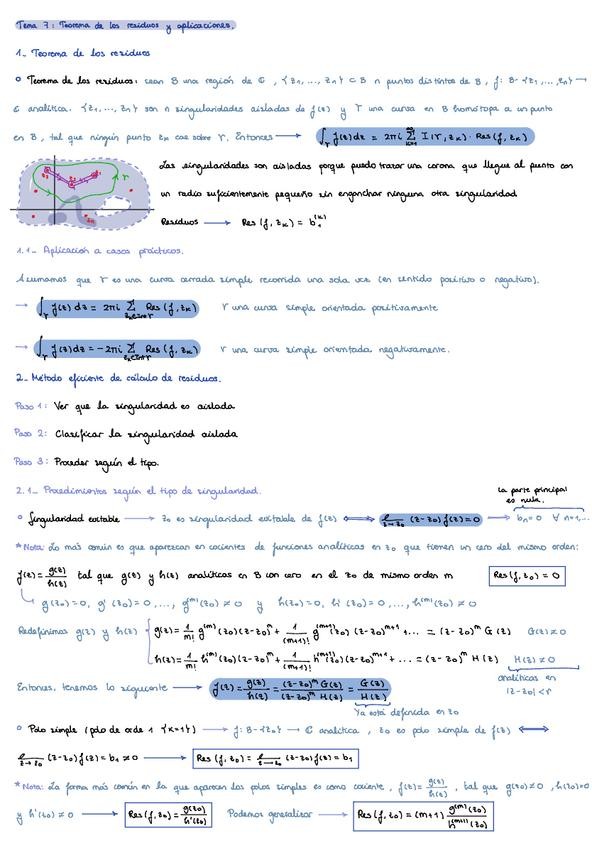 Tema 7: Teorema de los residuos y aplicaciones.
1_ Teorema de los residuos
Teorema de los residuos: sean B una región de ℂ, {z₁, ..., zₙ} ⊂ B n puntos distintos de B, f: B-{z₁, ..., zₙ} →
ℂ analítica. {z₁, ..., zₙ} son n singularidades aisladas de f(z) y γ una curva en B homótopa a un punto
en B, tal que ningún punto zₖ cae sobre γ. Entonces → ∫γ f(z) dz = 2πi Σ I(γ, zₖ) · Res(f, zₖ)
Las singularidades son aisladas porque puedo trazar una corona que llegue al punto con
un radio suficientemente pequeño sin enganchar ninguna otra singularidad
Residuos → Res(f, zₖ) = b₁⁽ᵏ⁾
1.1_ Aplicación a casos prácticos.
Asumamos que γ es una curva cerrada simple recorrida una sola vez (en sentido positivo o negativo).
→ ∫γ f(z) dz = 2πi Σ Res(f, zₖ) γ una curva simple orientada positivamente
→ ∫γ f(z) dz = -2πi Σ Res(f, zₖ) γ una curva simple orientada negativamente.
2_ Método eficiente de cálculo de residuos.
Paso 1: Ver que la singularidad es aislada
Paso 2: Clasificar la singularidad aislada
Paso 3: Proceder según el tipo.
2.1_ Procedimientos según el tipo de singularidad.
la parte principal
es nula.
Singularidad evitable → z₀ es singularidad evitable de f(z) ⟺ ℓ z→z₀ (z-z₀) f(z) = 0 → bₙ = 0 ∀ n=1,...
*Nota: Lo más común es que aparezcan en cocientes de funciones analíticas en z₀ que tienen un cero del mismo orden:
f(z) = g(z)/h(z) tal que g(z) y h(z) analíticas en B con cero en el z₀ de mismo orden m Res(f, z₀) = 0
g(z₀) = 0, g'(z₀) = 0, ..., g⁽ᵐ⁾(z₀) ≠ 0 y h(z₀) = 0, h'(z₀) = 0, ..., h⁽ᵐ⁾(z₀) ≠ 0
Redefinimos g(z) y h(z) g(z) = 1/m! g⁽ᵐ⁾(z₀)(z-z₀)ᵐ + 1/(m+1)! g⁽ᵐ⁺¹⁾(z₀)(z-z₀)ᵐ⁺¹ + ... = (z-z₀)ᵐ G(z) G(z) ≠ 0
h(z) = 1/m! h⁽ᵐ⁾(z₀)(z-z₀)ᵐ + 1/(m+1)! h⁽ᵐ⁺¹⁾(z₀)(z-z₀)ᵐ⁺¹ + ... = (z-z₀)ᵐ H(z) H(z) ≠ 0
analíticas en
|z-z₀| < r
Entonces, tenemos lo siguiente → f(z) = g(z)/h(z) = (z-z₀)ᵐ G(z)/(z-z₀)ᵐ H(z) = G(z)/H(z)
Ya está definida en z₀
Polo simple (polo de orden 1 {k=1}) → f: B-{z₀} → ℂ analítica, z₀ es polo simple de f(z) ⟺
ℓ z→z₀ (z-z₀) f(z) = b₁ ≠ 0 → Res(f, z₀) = ℓ z→z₀ (z-z₀) f(z) = b₁
*Nota: La forma más común en la que aparecen los polos simples es como cociente, f(z) = g(z)/h(z), tal que g(z₀) ≠ 0, h(z₀) = 0
y h'(z₀) ≠ 0 → Res(f, z₀) = g(z₀)/h'(z₀) Podemos generalizar → Res(f, z₀) = (m+1) g⁽ᵐ⁾(z₀)/h⁽ᵐ⁺¹⁾(z₀)